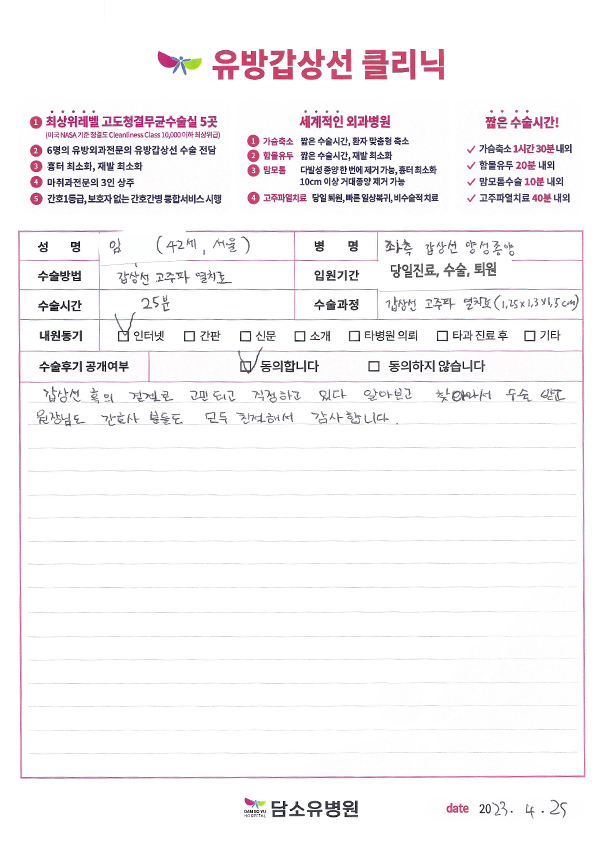 유방갑상선 클리닉
1 최상위레벨 고도청결무균수술실 5곳
(미국 NASA 기준 청결도 Cleanliness Class 10,000 이하 최상위급)
2 6명의 유방외과전문의 유방갑상선 수술 전담
3 흉터 최소화, 재발 최소화
4 마취과전문의 3인 상주
5 간호1등급, 보호자 없는 간호간병 통합서비스 시행
세계적인 외과병원
1 가슴축소 짧은 수술시간, 환자 맞춤형 축소
2 함몰유두 짧은 수술시간, 재발 최소화
3 맘모톰 다발성 종양 한 번에 제거 가능, 흉터 최소화
10cm 이상 거대종양 제거 가능
4 고주파열치료 당일 퇴원, 빠른 일상복귀, 비수술적 치료
짧은 수술시간!
가슴축소 1시간 30분 내외
함몰유두 20분 내외
맘모톰수술 10분 내외
고주파열치료 40분 내외
성 명 임 (42세, 서울) 병 명 좌측 갑상선 양성종양
수술방법 갑상선 고주파 열치료 입원기간 당일진료, 수술, 퇴원
수술시간 25분 수술과정 갑상선 고주파 열치료 (1.25x1.3x1.5cm)
내원동기 인터넷 간판 신문 소개 타병원 의뢰 타과 진료 후 기타
수술후기 공개여부 동의합니다 동의하지 않습니다
갑상선 혹의 결절로 고민되고 걱정하고 있다 알아보고 찾아와서 수술 받고
원장님도 간호사 분들도 모두 친절해서 감사합니다.
DAMSOYU
HOSPITAL
담소유병원
date 2023. 4. 25